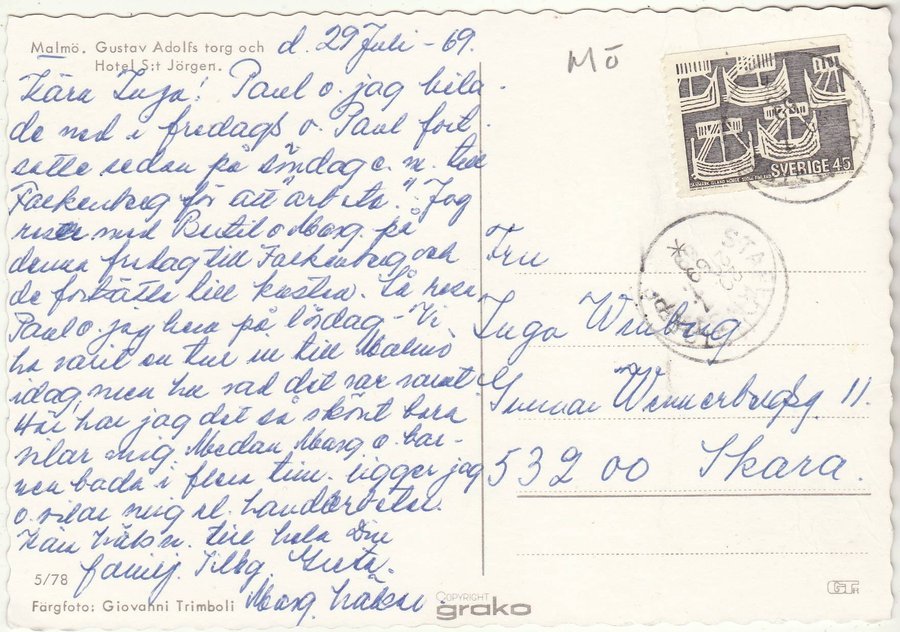 Malmö. Gustav Adolfs torg och
Hotel S:t Jörgen.
d. 29 Juli - 69.
Kära Inga! Paul o. jag bila
de ned i fredags o. Paul fort
satte sedan på söndag e. m. till
Falkenberg för att "arbeta". Jag
reser med Bertil o Marg. på
denna fredag till Falkenberg och
de fortsätta till kusten. Så resa
Paul o. jag hem på lördag - Vi
ha varit en tur in till Malmö
idag, men ha vad det var varmt
Här har jag det så skönt bara
vilar mig Medan Marg o. bar-
nen bada i flera tim. ligger jag
o. vilar mig el. handarbetar.
Kära häls n. till hela Din
familj. Greta.
Marg hälsar.
Mö
SVERIGE 45
Fru
Inga Winberg
Gunnar Wennerbergsg. 11.
532 00 Skara.
5/78
Färgfoto: Giovanni Trimboli
COPYRIGHT
grako